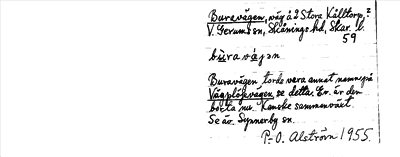 Buravägen, väg å? Stora Källtorp,?
V. Gerums sn, Skånings hd, Skar. l.
59
bùravàjən
Buravägen torde vara annat namn på
Vägplöjevägen, se detta. En. är den
borta nu. Kanske sammanväxt.
Se äv. Synnerby sn.
P.-O. Alström 1955.